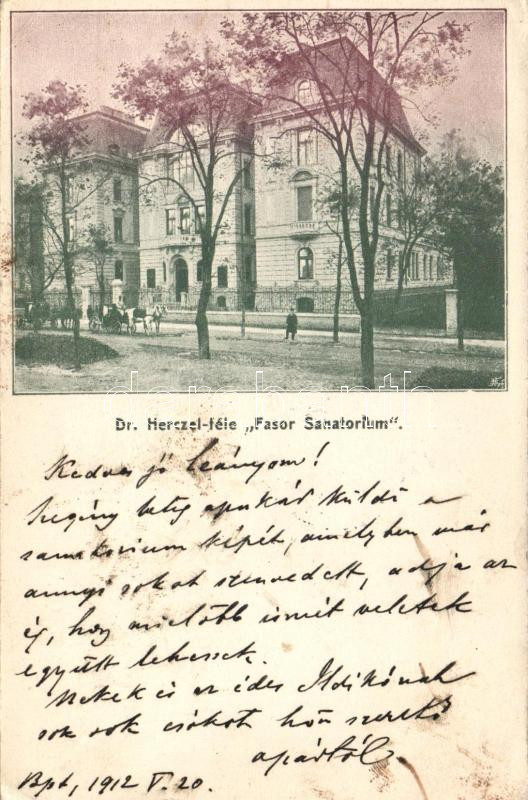 Dr. Herczel-féle „Fasor Sanatorium".
Kedves jó leányom!
Szegény beteg apukád küldi a
sanatorium képét, amelyben már
annyi sokat szenvedett, adja az
ég, hogy mielőbb ismét veletek
együtt lehessek.
Neked és az édes Ildikónak
sok sok csókot hőn szerető
apádtól.
Bpt, 1912 V. 20.